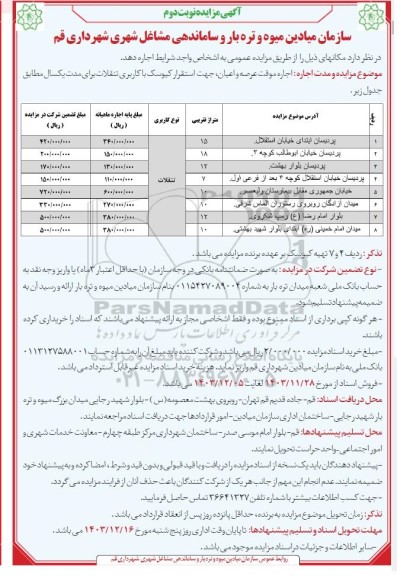 آگهی مزایده نوبت دوم
سازمان میادین میوه و تره بار و ساماندهی مشاغل شهری شهرداری قم
در نظر دارد مکانهای ذیل را از طریق مزایده عمومی به اشخاص واجد شرایط اجاره دهد.
موضوع مزایده و مدت اجاره: اجاره موقت عرصه و اعیان، جهت استقرار کیوسک با کاربری تنقلات برای مدت یکسال مطابق
جدول زیر.
ردیف آدرس موضوع مزایده متراژ تقریبی نوع کاربری مبلغ پایه اجاره ماهیانه (ریال) مبلغ تضمین شرکت در مزایده (ریال)
۱ پردیسان ابتدای خیابان استقلال. ۱۵ تنقلات ۳۴۰/۰۰۰/۰۰۰ ۴۲۰/۰۰۰/۰۰۰
۲ پردیسان خیابان ابوطالب کوچه ۳. ۱۸ ۱۵۰/۰۰۰/۰۰۰ ۲۰۰/۰۰۰/۰۰۰
۳ پردیسان بلوار بهشت. ۱۲ ۱۳۰/۰۰۰/۰۰۰ ۱۷۰/۰۰۰/۰۰۰
۴ پردیسان خیابان استقلال کوچه ۴ بعد از فرعی اول. ۷ ۱۱۰/۰۰۰/۰۰۰ ۱۵۰/۰۰۰/۰۰۰
۵ خیابان جمهوری مقابل بیمارستان ولیعصر. ۱۰ ۶۰۰/۰۰۰/۰۰۰ ۷۲۰/۰۰۰/۰۰۰
۶ میدان آزادگان روبروی رستوران الماس شرقی. ۱۰ ۲۷۰/۰۰۰/۰۰۰ ۳۳۰/۰۰۰/۰۰۰
۷ بلوار امام رضا (ع) زنبیل ۱۲ ۳۸۰/۰۰۰/۰۰۰ ۵۰۰/۰۰۰/۰۰۰
۸ میدان امام خمینی (ره) ابتدای بلوار شهید بهشتی. ۱۰ ۳۸۰/۰۰۰/۰۰۰ ۵۰۰/۰۰۰/۰۰۰
تذکر: ردیف ۴ و ۷ تهیه کیوسک بر عهده برنده مزایده می باشد.
- نوع تضمین شرکت در مزایده: به صورت ضمانتنامه بانکی در وجه سازمان (با حداقل اعتبار ۳ ماه) یا واریز وجه نقد به
حساب بانک ملی شعبه میدان تره بار به شماره ۰۱۱۵۴۲۷۰۸۹۰۰۲ بنام سازمان میادین میوه و تره بار ارائه و رسید آن به
ضمیمه پیشنهاد تسلیم شود.
- هر گونه کپی برداری از اسناد ممنوع بوده و فقط اشخاصی مجاز به ارائه پیشنهاد می باشند که اسناد را خریداری کرده
باشند.
- مبلغ خرید اسناد مزایده ۲/۰۰۰/۰۰۰ ریال می باشد و شرکت کننده باید مبلغ آن را به شماره حساب ۰۱۱۳۱۲۷۵۸۸۰۰۱
بانک ملی به نام سازمان میادین شهرداری قم واریز نماید. هزینه خرید اسناد مزایده غیر قابل استرداد می باشد.
- فروش اسناد از مورخ ۱۴۰۳/۱۱/۲۸ لغایت ۱۴۰۳/۱۲/۰۵ می باشد.
محل دریافت اسناد: قم- جاده قدیم قم تهران- روبروی بهشت معصومه (س) - بلوار شهید رجایی میدان بزرگ میوه و تره
بار شهید رجایی- ساختمان اداری سازمان میادین- امور قراردادها جهت دریافت اسناد مراجعه نمایند.
محل تسلیم پیشنهادها: قم- بلوار امام موسی صدر- ساختمان شهرداری مرکز طبقه چهارم- معاونت خدمات شهری و
امور اجتماعی- واحد حراست تحویل نمایند.
- پیشنهاد دهندگان باید یک نسخه از اسناد مزایده را دریافت و با قید قبولی و بدون قید و شرط، امضا کرده و به پیشنهاد خود
ضمیمه نمایند. عدم انجام این مهم از جانب هر یک از شرکت کنندگان باعث حذف آنان از فرایند مزایده می گردد.
- جهت کسب اطلاعات بیشتر با شماره تلفن ۳۶۶۴۱۳۲۷ تماس حاصل فرمایید.
تذکر: زمان تحویل موضوع مزایده به برنده، حداقل پانزده روز پس از انعقاد قرارداد می باشد.
مهلت تحویل اسناد و تسلیم پیشنهادها: تا پایان وقت اداری روز پنج شنبه مورخ ۱۴۰۳/۱۲/۱۶ می باشد.
- سایر اطلاعات و جزئیات در اسناد مزایده موجود می باشد.
روابط عمومی سازمان میادین میوه و تره بار و ساماندهی مشاغل شهری شهرداری قم
ParsNamadData